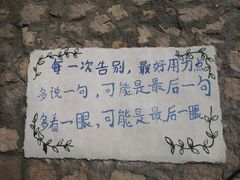 每一次告别，最好用力点
多说一句，可能是最后一句
多看一眼，可能是最后一眼